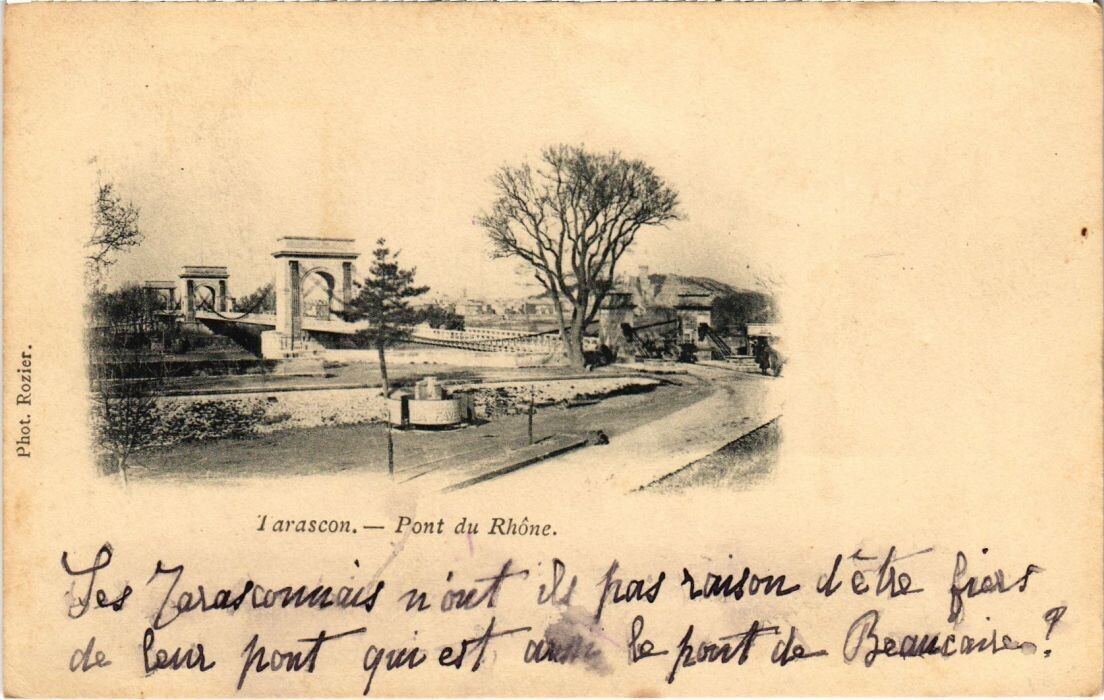 Phot. Rozier.
Tarascon. — Pont du Rhône.
Les Tarasconnais n'ont ils pas raison d'être fiers
de leur pont qui est aussi le pont de Beaucaire?